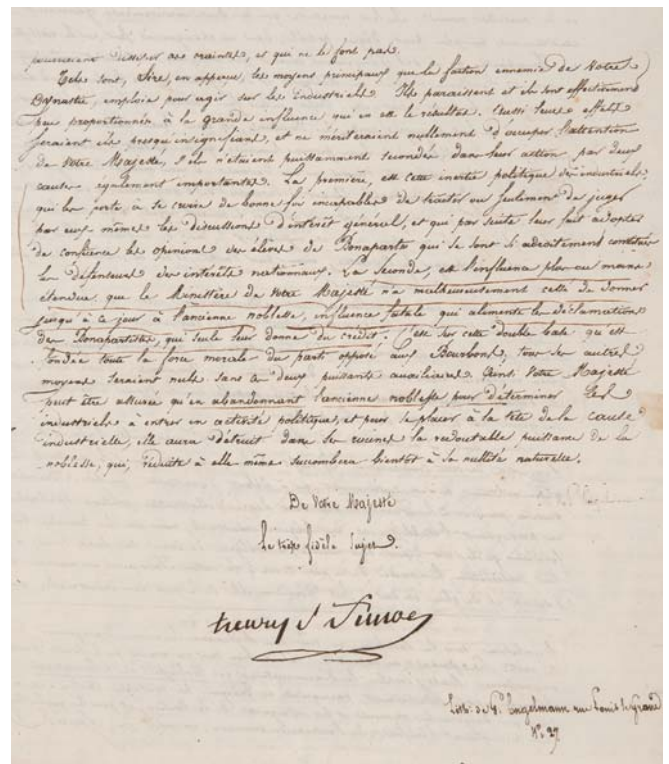 pourraient dissiper ces craintes, et qui ne le font pas.
Tels sont, Sire, en apperçu, les moyens principaux que la faction ennemie de Votre
Dynastie, emploie pour agir sur les industriels. Ils paraissent et ils sont effectivement
peu proportionnés à la grande influence qui en est le résultat. Aussi leurs effets
seraient ils presqu'insignifians, et ne mériteraient nullement d'occuper l'attention
de Votre Majesté, s'ils n'étaient puissamment secondés dans leur action par deux
causes également importantes. La première, est cette inertie politique des industriels,
qui les porte à se croire de bonne foi incapables de traiter ou seulement de juger
par eux mêmes les discussions d'intérêt général, et qui par suite leur fait adopter
de confiance les opinions des élèves de Bonaparte qui se sont si adroitement constitués
les défenseurs des intérêts nationnaux. La Seconde, est l'influence plus ou moins
étendue, que le Ministère de Votre Majesté n'a malheureusement cessé de donner
jusqu'à ce jour à l'ancienne noblesse, influence fatale qui alimente les déclamations
des Bonapartistes, qui seule leur donne du crédit. C'est sur cette double base qu'est
fondée toute la force morale du parti opposé aux Bourbons, tous ses autres
moyens seraient nuls sans ces deux puissants auxiliaires. Ainsi Votre Majesté
peut être assurée qu'en abandonnant l'ancienne noblesse pour déterminer les
industriels à entrer en activité politique, et pour se placer à la tête de la cause
industrielle, elle aura détruit dans ses racines la redoutable puissance de la
noblesse, qui, réduite à elle même succombera bientôt à sa nullité naturelle.
De Votre Majesté
Le très fidèle Sujet.
henry St Simon
Lith: de G. Engelmann rue Louis le Grand
N.º 27